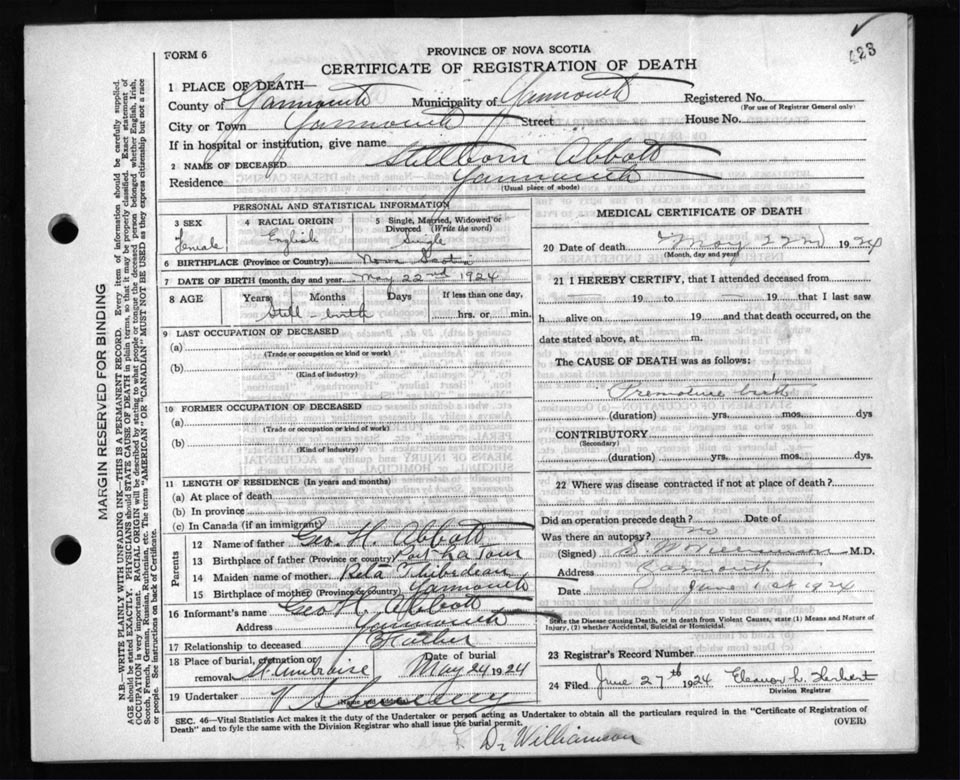 423
FORM 6
PROVINCE OF NOVA SCOTIA
CERTIFICATE OF REGISTRATION OF DEATH
1 PLACE OF DEATH—
County of Yarmouth Municipality of Yarmouth Registered No.
(For use of Registrar General only)
City or Town Yarmouth Street House No.
If in hospital or institution, give name
2 NAME OF DECEASED Stillborn Abbott
Residence Yarmouth
(Usual place of abode)
PERSONAL AND STATISTICAL INFORMATION
3 SEX 4 RACIAL ORIGIN 5 Single, Married, Widowed or Divorced (Write the word)
Female English Single
6 BIRTHPLACE (Province or Country) Nova Scotia
7 DATE OF BIRTH (month, day and year) May 22nd 1924
8 AGE Years Months Days If less than one day,
Still-birth hrs. or min.
9 LAST OCCUPATION OF DECEASED
(a)
(Trade or occupation or kind or work)
(b)
(Kind of industry)
10 FORMER OCCUPATION OF DECEASED
(a)
(Trade or occupation or kind of work)
(b)
(Kind of industry)
11 LENGTH OF RESIDENCE (In years and months)
(a) At place of death
(b) In province
(c) In Canada (if an immigrant)
Parents
12 Name of father Geo. H. Abbott
13 Birthplace of father (Province or country) Port La Tour
14 Maiden name of mother Reta Thibedeau
15 Birthplace of mother (Province or country) Yarmouth
16 Informant's name Geo H. Abbott
Address Yarmouth
17 Relationship to deceased Father
18 Place of burial, cremation or removal St Ambroise Date of burial May 24 1924
19 Undertaker V S
(Name and address)
MEDICAL CERTIFICATE OF DEATH
20 Date of death May 22nd 1924
(Month, day and year)
21 I HEREBY CERTIFY, that I attended deceased from
— 19 to — 19 that I last saw
h alive on 19 and that death occurred, on the
date stated above, at m.
The CAUSE OF DEATH was as follows:
Premature birth
(duration) yrs. mos. dys
CONTRIBUTORY
(Secondary)
(duration) yrs. mos. dys.
22 Where was disease contracted if not at place of death?
Did an operation precede death? Date of
Was there an autopsy? no
(Signed) M.D.
Address Yarmouth
Date June 1st 1924
State the Disease causing Death, or in death from Violent Causes, state (1) Means and Nature of
Injury, (2) whether Accidental, Suicidal or Homicidal.
23 Registrar's Record Number
24 Filed June 27th 1924 Eleanor L. Herbert
Division Registrar
SEC. 46—Vital Statistics Act makes it the duty of the Undertaker or person acting as Undertaker to obtain all the particulars required in the "Certificate of Registration of
Death" and to fyle the same with the Division Registrar who shall issue the burial permit.
(OVER)
Dr Williamson
MARGIN RESERVED FOR BINDING
N.B.—WRITE PLAINLY WITH UNFADING INK—THIS IS A PERMANENT RECORD. Every item of information should be carefully supplied.
AGE should be stated EXACTLY. PHYSICIANS should STATE CAUSE OF DEATH in plain terms, so that it may be properly classified. Exact statement of
OCCUPATION is very important. RACIAL ORIGIN will be described by stating to what people or tongue the deceased person belonged whether English, Irish,
Scotch, French, German, Russian, Ruthenian, etc. The terms "AMERICAN" or "CANADIAN" MUST NOT BE USED as they express citizenship but not a race
or people. See instructions on back of Certificate.